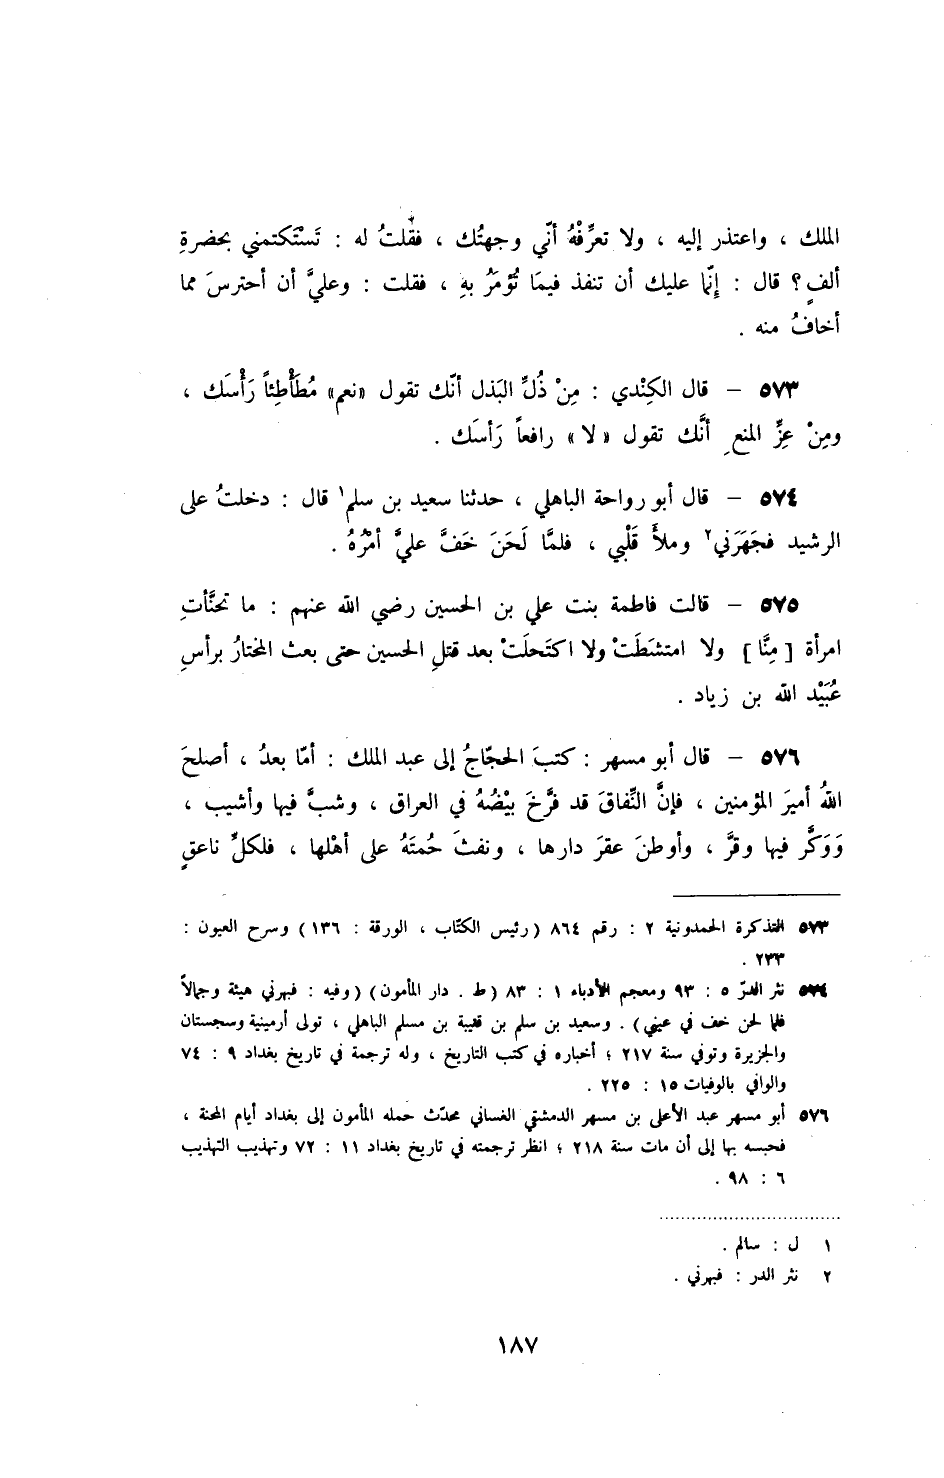 الملك ، واعتذر إليه ، ولا تعرِّفْهُ أنّي وجهتُك ، فقُلتُ له : تَسْتَكتمني بحضرةِ
ألفٍ؟ قال : إنّما عليك أن تنفذ فيمَا تُؤمَرُ بهِ ، فقلت : وعليَّ أن أحترسَ مما
أخافُ منه .
٥٧٣ – قال الكِنْدي : مِنْ ذُلِّ البَذل أنّك تقول «نعم» مُطَأْطِئاً رَأْسَك ،
ومِنْ عِزِّ المنعِ أنَّك تقول « لا » رافعاً رَأسَك .
٥٧٤ – قال أبو رواحة الباهلي ، حدثنا سعيد بن سلم١ قال : دخلتُ على
الرشيد فجَهَرَني٢ وملأَ قَلْبي ، فلمَّا لَحَنَ خَفَّ عليَّ أمْرُهُ .
٥٧٥ – قالت فاطمة بنت علي بن الحسين رضي الله عنهم : ما تحنَّأتِ
امرأة [ مِنَّا ] ولا امتشَطَتْ ولا اكتَحلَتْ بعد قتلِ الحسين حتى بعث المختارُ برأسِ
عُبَيْد الله بن زياد .
٥٧٦ – قال أبو مسهر : كتبَ الحجّاجُ إلى عبد الملك : أمّا بعدُ ، أصلحَ
اللهُ أميرَ المؤمنين ، فإنَّ النِّفاقَ قد فرَّخَ بيْضُهُ في العراق ، وشبَّ فيها وأشيب ،
وَوَكَّر فيها وقرَّ ، وأوطنَ عقرَ دارها ، ونفثَ حُمتَهُ على أهْلها ، فلكلِّ ناعقٍ
٥٧٣ التذكرة الحمدونية ٢ : رقم ٨٦٤ (رئيس الكتّاب ، الورقة : ١٣٦) وسرح العيون :
٢٣٣ .
٥٧٤ نثر الدرّ ٥ : ٩٣ ومعجم الأدباء ١ : ٨٣ (ط . دار المأمون) (وفيه : فبهرني هيئة وجمالاً
فلما لحن خف في عيني) . وسعيد بن سلم بن قتيبة بن مسلم الباهلي ، تولى أرمينية وسجستان
والجزيرة وتوفي سنة ٢١٧ ؛ أخباره في كتب التاريخ ، وله ترجمة في تاريخ بغداد ٩ : ٧٤
والوافي بالوفيات ١٥ : ٢٢٥ .
٥٧٦ أبو مسهر عبد الأعلى بن مسهر الدمشقي الغساني محدّث حمله المأمون إلى بغداد أيام المحنة ،
فحبسه بها إلى أن مات سنة ٢١٨ ؛ انظر ترجمته في تاريخ بغداد ١١ : ٧٢ وتهذيب التهذيب
٦ : ٩٨ .
١ ل : سالم .
٢ نثر الدر : فبهرني .
١٨٧